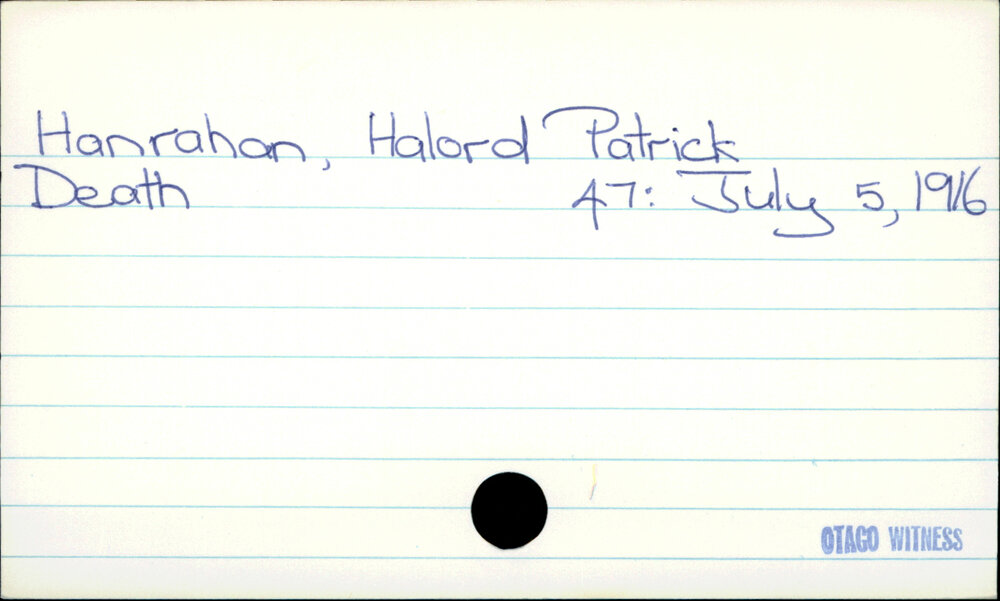 Hanrahan, Halord Patrick
Death 47: July 5, 1916
OTAGO WITNESS